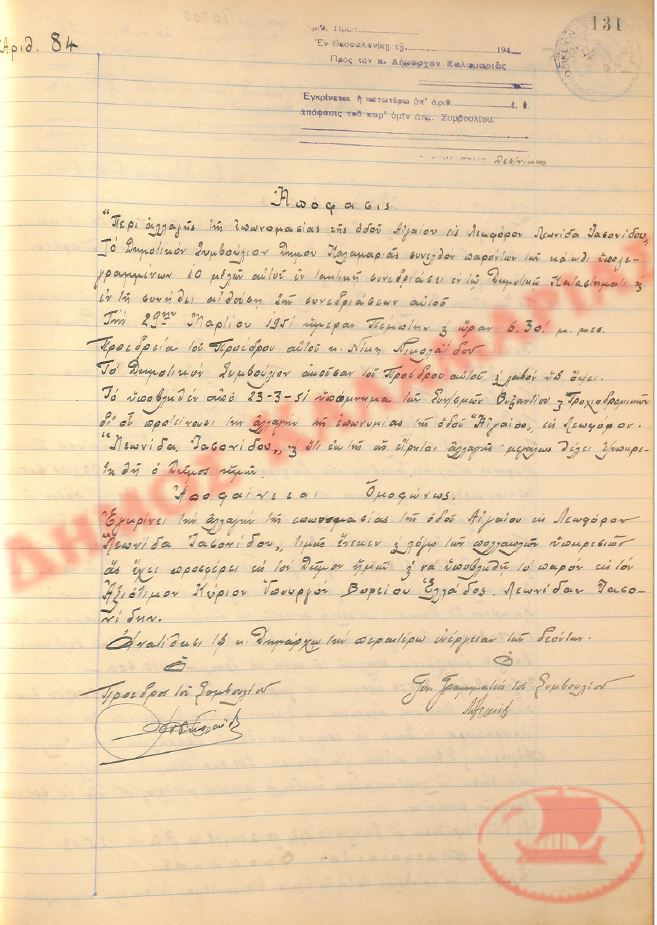 131
Αριθ. 84
Ἐν Θεσσαλονίκῃ τῇ 194
Πρὸς τὸν κ. Δήμαρχον Καλαμαριᾶς
Ἐγκρίνεται ἡ κατωτέρω ὑπ' ἀριθ.
ἀπόφασις τοῦ καθ' ὑμᾶς Δημ. Συμβουλίου.
Ἀπόφασις
"Περὶ ἀλλαγῆς τῆς ἐπωνομασίας τῆς ὁδοῦ Αἰγαίου εἰς Λεωφόρον Λεωνίδα Ἰασονίδου"
Τὸ Δημοτικὸν Συμβούλιον Δήμου Καλαμαριᾶς συνελθὸν παρόντων τῶν κάτωθι ὑπογε-
γραμμένων 10 μελῶν αὐτοῦ ἐν τακτικῇ συνεδριάσει ἐν τῷ Δημοτικῷ Καταστήματι &
ἐν τῇ συνήθει αἰθούσῃ τῶν συνεδριάσεων αὐτοῦ
Τὴν 29ην Μαρτίου 1951 ἡμέραν Πέμπτην & ὥραν 6.30' μ. μεσ.
Προεδρεία τοῦ Προέδρου αὐτοῦ κ. Νίκη Νικολαΐδου
Τὸ Δημοτικὸν Συμβούλιον ἀκοῦσαν τοῦ Προέδρου αὐτοῦ & λαβὸν ὑπ' ὄψει.
Τὸ ὑποβληθὲν ἀπὸ 23-3-51 ὑπόμνημα τῶν Συνοικισμῶν Βυζαντίου & Τροχιοδρομικῶν
δι' οὗ προτείνουσι τὴν ἀλλαγὴν τῆς ἐπωνυμίας τῆς ὁδοῦ "Αἰγαίου" εἰς Λεωφόρον
"Λεωνίδα Ἰασονίδου" & ὅτι ἐκ τῆς ὡς εἴρηται ἀλλαγῆς μεγάλως θέλει ἐξυπηρε-
τηθῆ ὁ Δῆμος ἡμῶν.
Ἀποφαίνεται Ὁμοφώνως.
Ἐγκρίνει τὴν ἀλλαγὴν τῆς ἐπωνομασίας τῆς ὁδοῦ Αἰγαίου εἰς Λεωφόρον
"Λεωνίδα Ἰασονίδου" τιμῆς ἕνεκεν & λόγω τῶν πολλαπλῶν ὑπηρεσιῶν
ἃς ἔχει προσφέρει εἰς τὸν Δῆμον ἡμῶν & νὰ ὑποβληθῆ τὸ παρὸν εἰς τὸν
Ἀξιότιμον Κύριον Ὑπουργὸν Βορείου Ἑλλάδος, Λεωνίδαν Ἰασο-
νίδην.
Ἀνατίθησι τῷ κ. Δημάρχω τὴν περαιτέρω ἐνέργειαν τῶν δεόντων.
Ὁ Ὁ
Πρόεδρος τοῦ Συμβουλίου Γεν. Γραμματεὺς τοῦ Συμβουλίου
ΔΗΜΟΣ ΚΑΛΑΜΑΡΙΑΣ